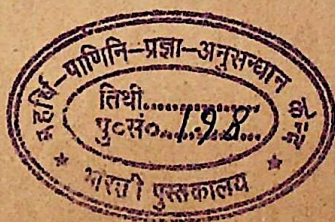 महर्षि-पाणिनि-प्रज्ञा-अनुसन्धान केन्द्र
तिथी..............
पु०सं०..198..
* भारती पुस्तकालय *